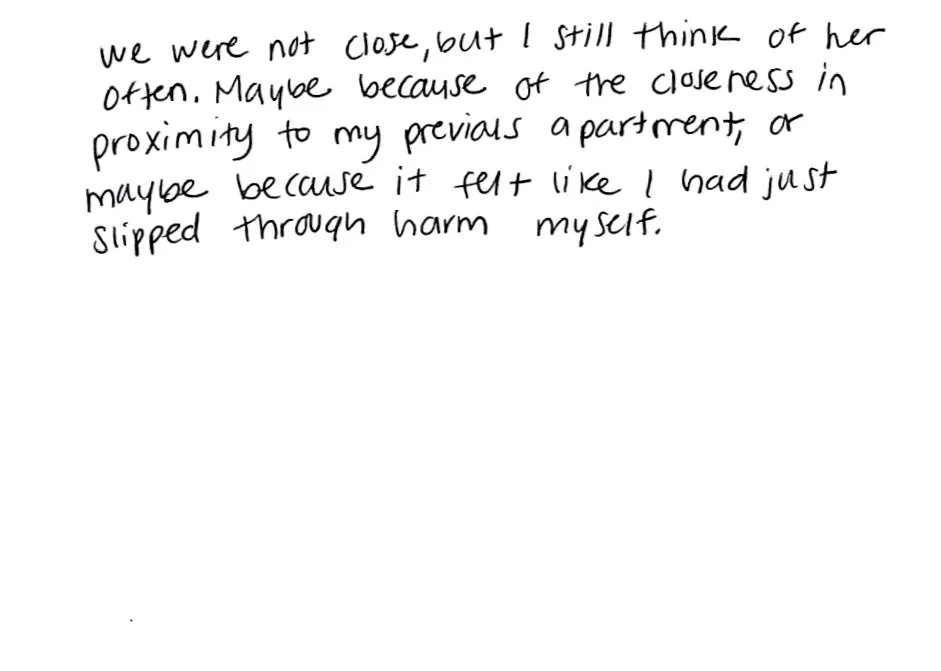 we were not close, but I still think of her
often. Maybe because of the closeness in
proximity to my previous apartment, or
maybe because it felt like I had just
slipped through harm myself.